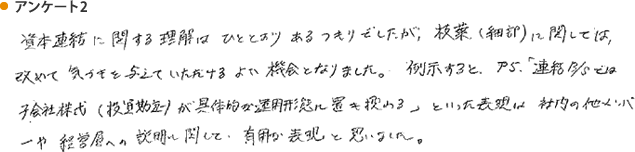 アンケート2
資本連結に関する理解はひととおりあるつもりでしたが、枝葉(細部)に関しては、
改めて気づきを与えていただけるよい機会となりました。例示すると、P5.「連結B/Sでは
子会社株式(投資勘定)が具体的な運用形態に置き換わる」といった表現は社内の他メンバ
ーや経営層への説明に関して、有用な表現と思いました。